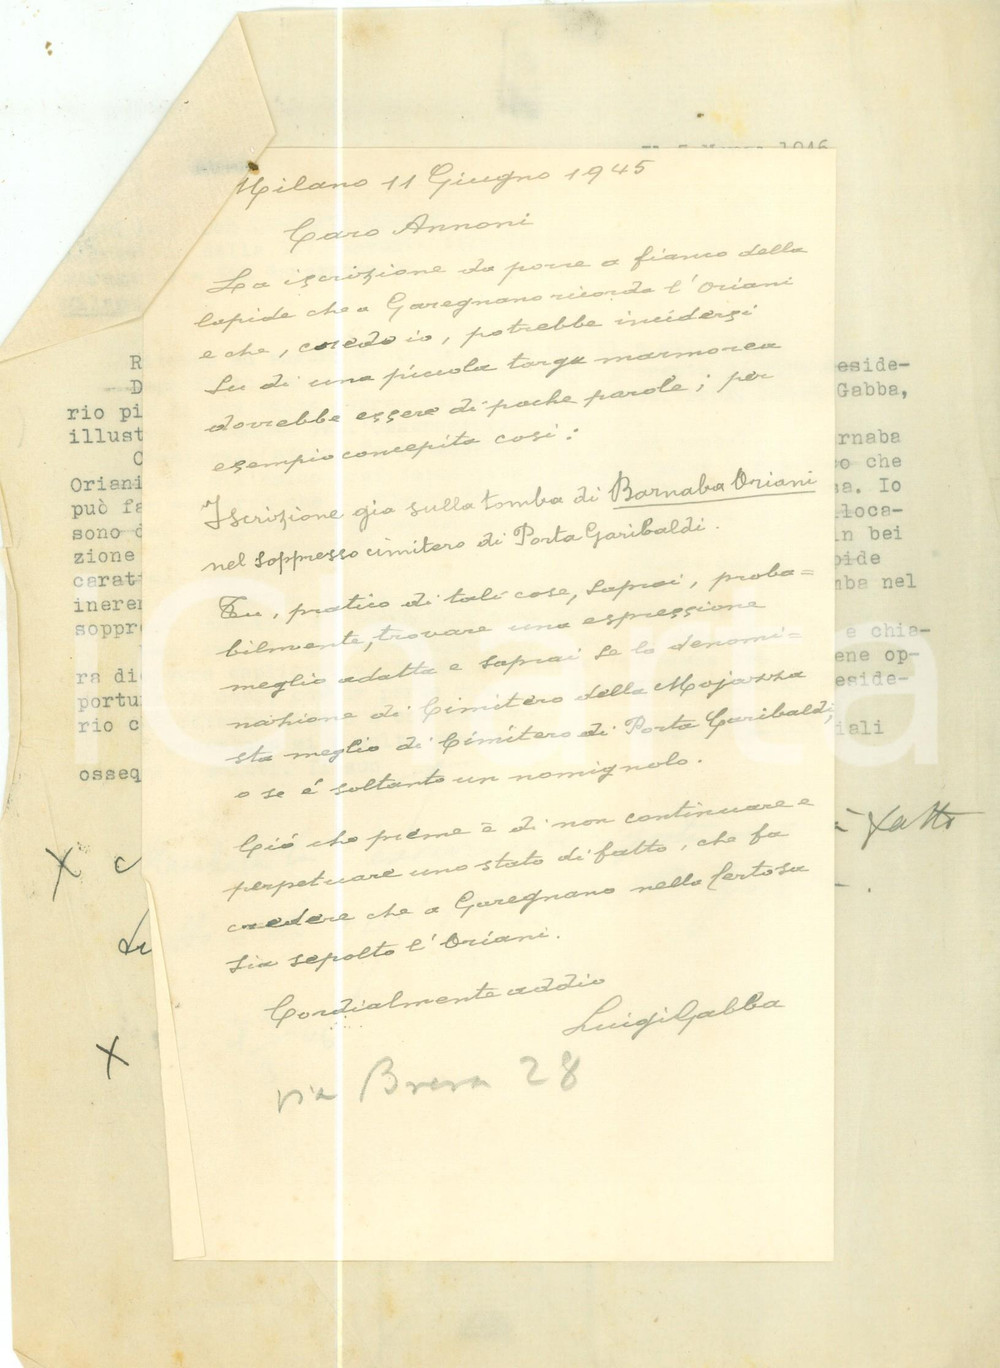 1946
Milano 11 Giugno 1945
Caro Annoni
La iscrizione da porre a fianco della
lapide che a Garegnano ricorda l'Oriani
e che, credo io, potrebbe incidersi
su di una piccola targa marmorea
dovrebbe essere di poche parole; per
esempio concepita così:
Iscrizione già sulla tomba di Barnaba Oriani
nel soppresso cimitero di Porta Garibaldi.
Tu, pratico di tali cose, saprai, proba=
bilmente, trovare una espressione
meglio adatta e saprai se la denomi=
nazione di Cimitero della Mojazza
sta meglio di Cimitero di Porta Garibaldi,
o se é soltanto un nomignolo.
Ció che preme è di non continuare e
perpetuare uno stato di fatto, che fa
credere che a Garegnano nella Certosa
sia sepolto l'Oriani.
Cordialmente addio
Luigi Gabba
via Brera 28
R
D
rio pi
illust
C
Oriani
può fa
sono
zione
carat
ineren
soppr
ra di
portu
rio c
osseq
eside-
Gabba,
rnaba
o che
sa. Io
lloca-
in bei
pide
mba nel
e chia-
ene op-
eside-
iali
fatto
X
X
iCharta